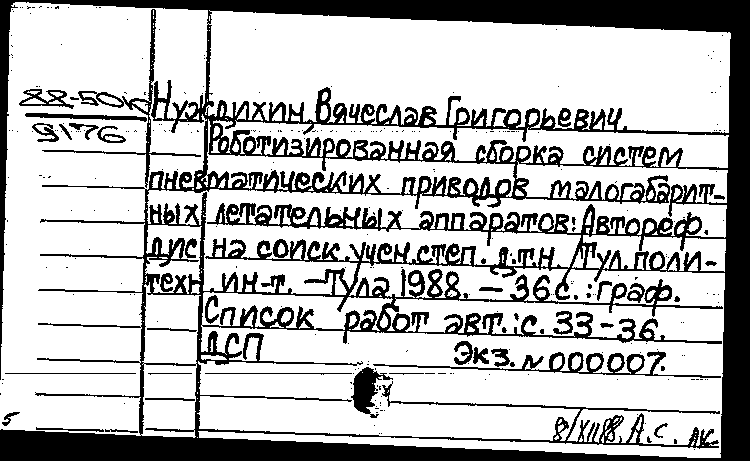 88-50к
9176
Нуждихин, Вячеслав Григорьевич.
Роботизированная сборка систем
пневматических приводов малогабарит-
ных летательных аппаратов: Автореф.
дис на соиск. учен. степ. д.т.н. /Тул. поли-
техн. ин-т. – Тула, 1988. – 36 с. : граф.
Список работ авт.: с. 33-36.
ДСП Экз. № 000007.
8/XII88. А.С. лк
5